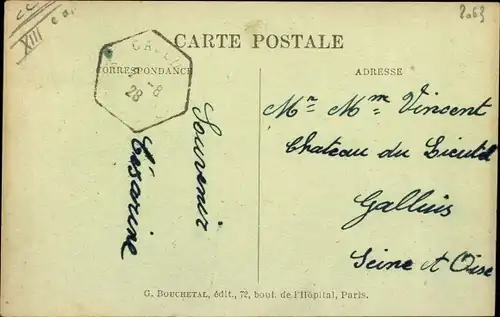 2063
XIII
CARTE POSTALE
CORRESPONDANCE
ADRESSE
7-8
28
Souvenir
Césarine
Mr Mme Vincent
Chateau du
Galluis
Seine et Oise
G. BOUCHETAL, édit., 72, boul. de l'Hôpital, Paris.